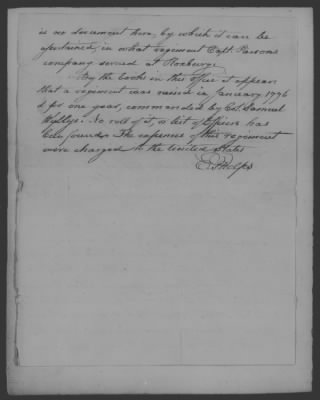 is no document there, by which it can be
ascertained, in what regiment Capt. Parsons
company served at Roxbury.
By the books in this office it appears
that a regiment was raised in January 1776
& for one year, commanded by Col. Samuel
Wyllys. No roll of it, or list of officers has
been found. The expenses of this regiment
were charged to the United States
E. Phelps